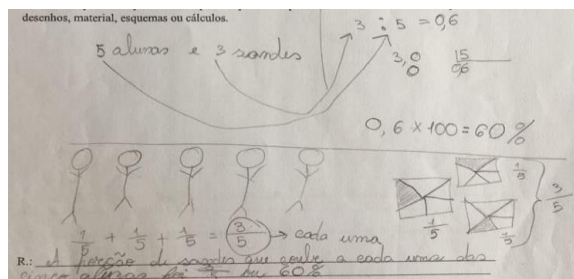 desenhos, material, esquemas ou cálculos.
3 : 5 = 0,6
5 alunas e 3 sandes
3,0 |5
0 0,6
0,6 x 100 = 60%
1/5 + 1/5 + 1/5 = 3/5 → cada uma
1/5
1/5
1/5
3/5
R.: A porção de sandes que coube a cada uma das
cinco alunas foi 3/5 ou 60%